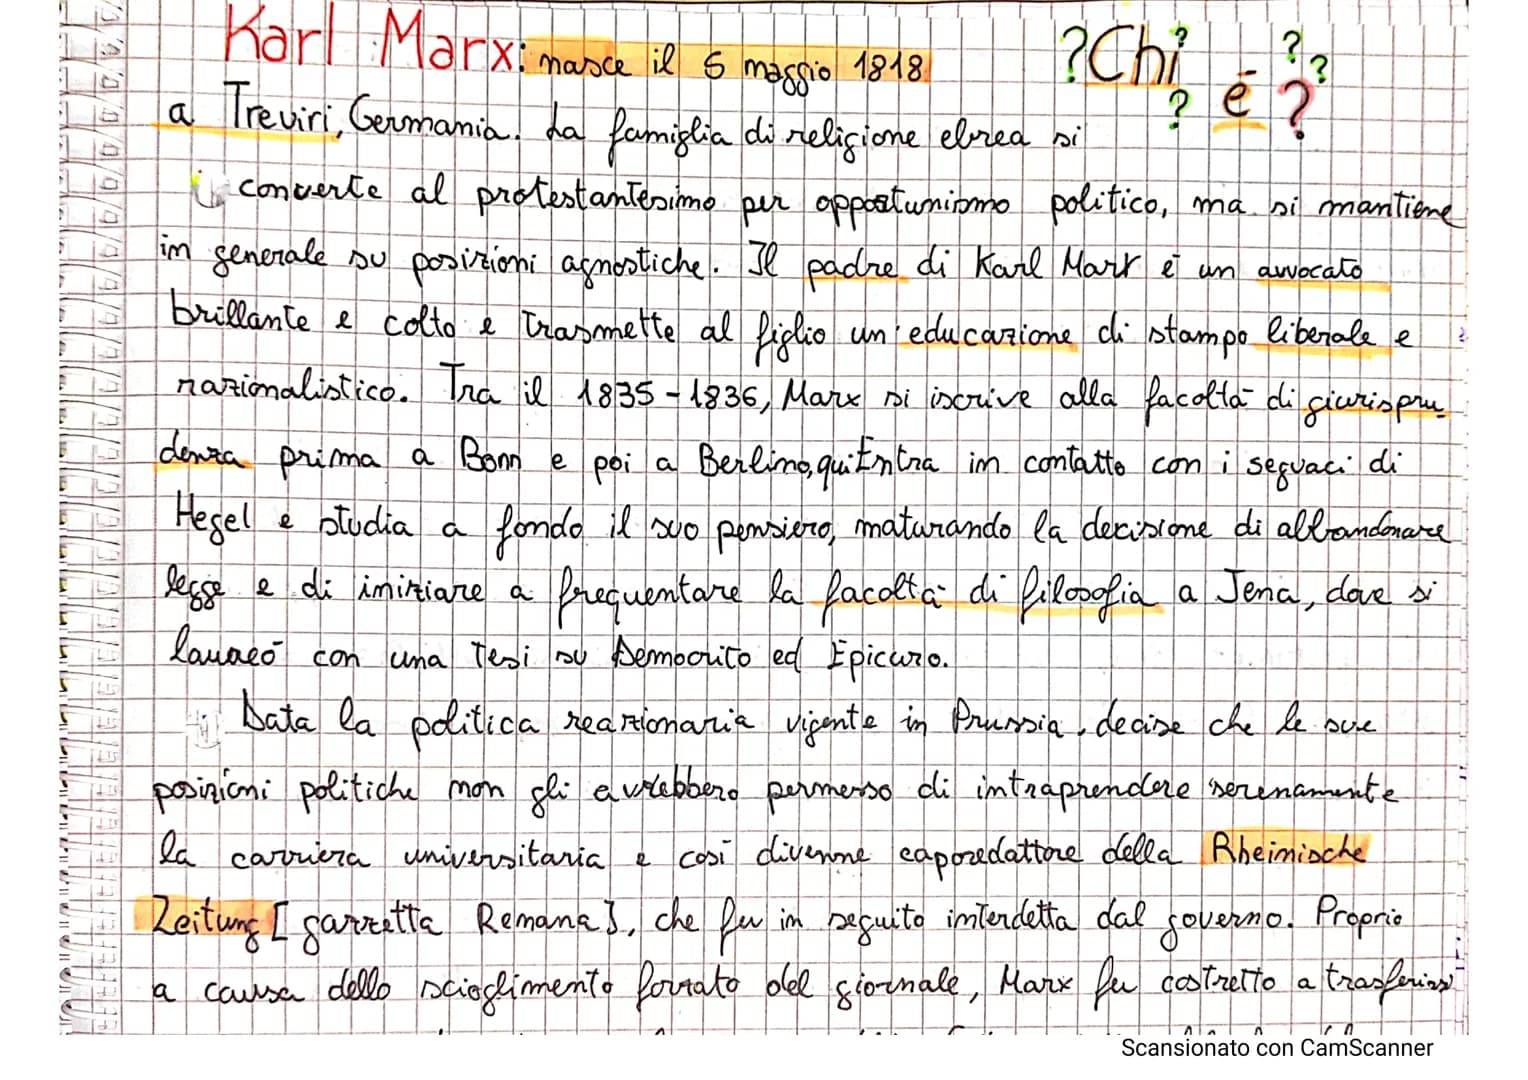 Karl Marx: nasce il 5 maggio 1818 ?Chi? è ????
a Treviri, Germania. La famiglia di religione ebrea si
converte al protestantesimo per opportunismo politico, ma si mantiene
in generale su posizioni agnostiche. Il padre di Karl Marx è un avvocato
brillante e colto e trasmette al figlio un'educazione di stampo liberale e
razionalistico. Tra il 1835-1836, Marx si iscrive alla facoltà di giurispru
denza prima a Bonn e poi a Berlino, qui Entra in contatto con i seguaci di
Hegel e studia a fondo il suo pensiero, maturando la decisione di abbandonare
legge e di iniziare a frequentare la facoltà di filosofia a Jena, dove si
laureò con una Tesi su Democrito ed Epicuro.
Data la politica reazionaria vigente in Prussia, decise che le sue
posizioni politiche non gli avrebbero permesso di intraprendere serenamente
la carriera universitaria e così divenne caporedattore della Rheinische
Zeitung [gazzetta Renana], che fu in seguito interdetta dal governo. Proprio
a causa dello scioglimento forzato del giornale, Marx fu costretto a trasferirsi
Scansionato con CamScanner